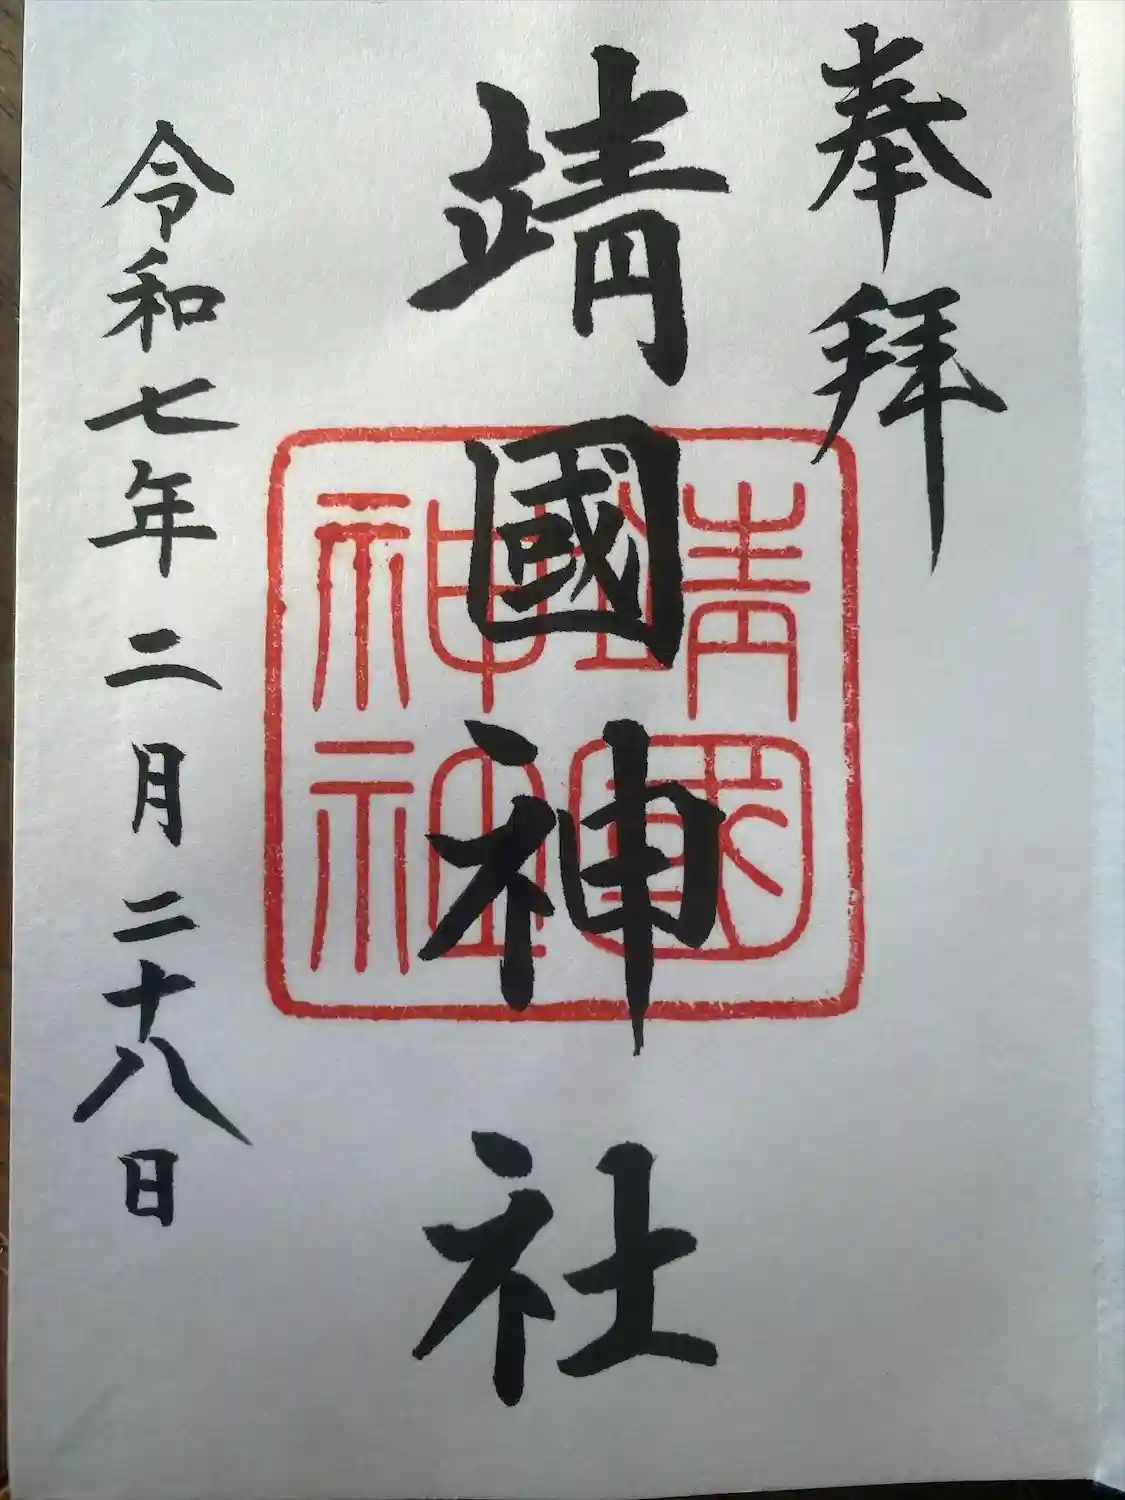 奉拜
靖國神社
令和七年二月二十八日
靖國
神社